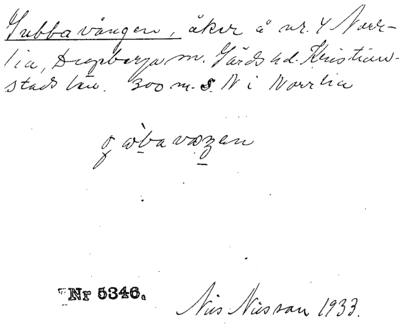 Gubbavången, åker å nr. 4 Norr-
lia, Degeberga sn. Gärds hd. Kristian-
stads län. 300 m. S N i Norrlia
Nr 5346.
Nils Nilsson 1933.